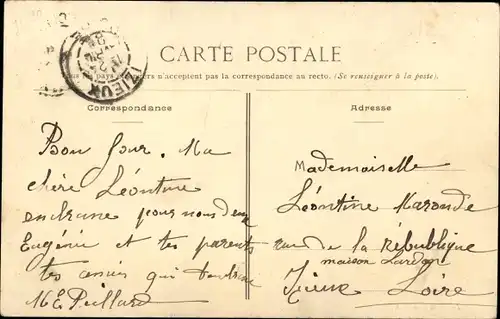 CARTE POSTALE
pays étrangers n'acceptent pas la correspondance au recto. (Se renseigner à la poste).
Correspondance
Adresse
IZIEUX
Bon Jour. Ma
chère Léontine
pour nous deux
Eugénie et tes parents
tes amies qui
Mademoiselle
Léontine Maronde
rue de la république
maison Lardon
Izieux Loire